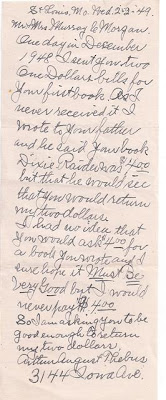 St Louis, Mo. Wed. 2-2-49.
Mr + Mrs Murray C Morgan.
One day in December
1948 I sent you two
One Dollars bills for
your first book. As I
never received it I
wrote to your father
and he said your book
Dixie Raider was $4.00
but that he would see
that you would return
my two dollars.
I had no idea that
you would ask 4.00 for
a book you wrote and I
sure hope it Must Be
Very Good but I would
never pay $4.00.
So I am asking you to be
good enough to return
my two dollars,
August Mebus
3144 Iowa Ave.